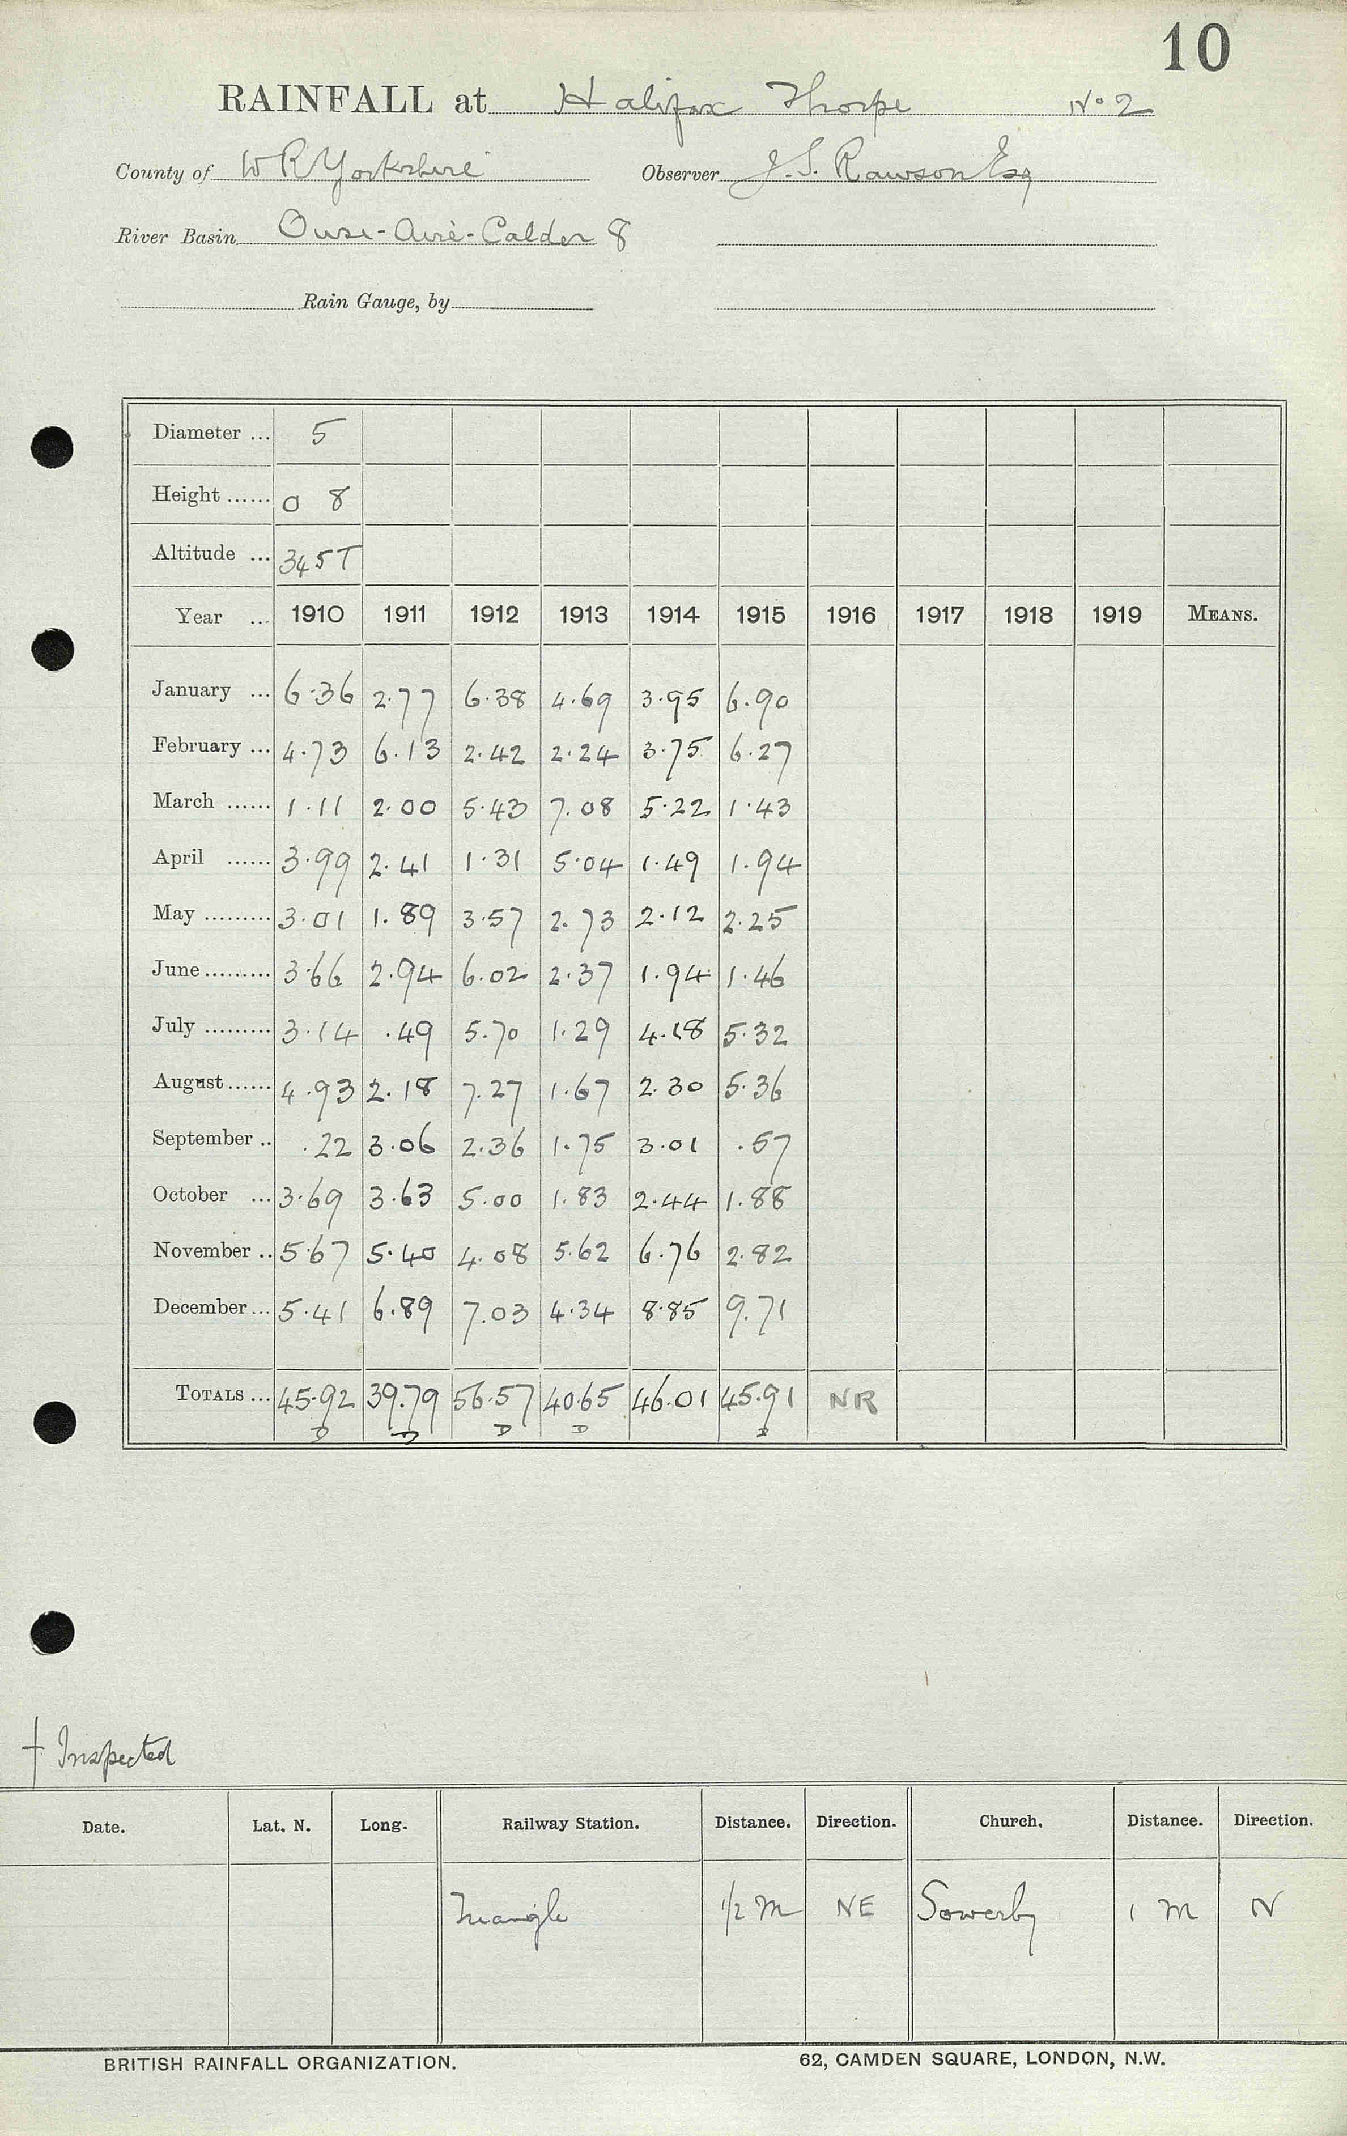 10
RAINFALL at Halifax Thorpe No 2
County of W R Yorkshire Observer J. S. Rawson Esq
River Basin Ouse-Aire-Calder 8
Rain Gauge, by
Diameter ... 5
Height ...... 0 8
Altitude ... 345T
Year ... 1910 1911 1912 1913 1914 1915 1916 1917 1918 1919 MEANS.
January ... 6.36 2.77 6.38 4.69 3.95 6.90
February ... 4.73 6.13 2.42 2.24 3.75 6.27
March ...... 1.11 2.00 5.43 7.08 5.22 1.43
April ...... 3.99 2.41 1.31 5.04 1.49 1.94
May ......... 3.01 1.89 3.57 2.73 2.12 2.25
June ......... 3.66 2.94 6.02 2.37 1.94 1.46
July ......... 3.14 .49 5.70 1.29 4.18 5.32
August ...... 4.93 2.18 7.27 1.67 2.30 5.36
September .. .22 3.06 2.36 1.75 3.01 .57
October ... 3.69 3.63 5.00 1.83 2.44 1.88
November .. 5.67 5.40 4.08 5.62 6.76 2.82
December ... 5.41 6.89 7.03 4.34 8.85 9.71
TOTALS ... 45.92 39.79 56.57 40.65 46.01 45.91 NR
D D D D D
† Inspected
Date. Lat. N. Long. Railway Station. Distance. Direction. Church. Distance. Direction.
Triangle 1/2 m NE Sowerby 1 m N
BRITISH RAINFALL ORGANIZATION. 62, CAMDEN SQUARE, LONDON, N.W.